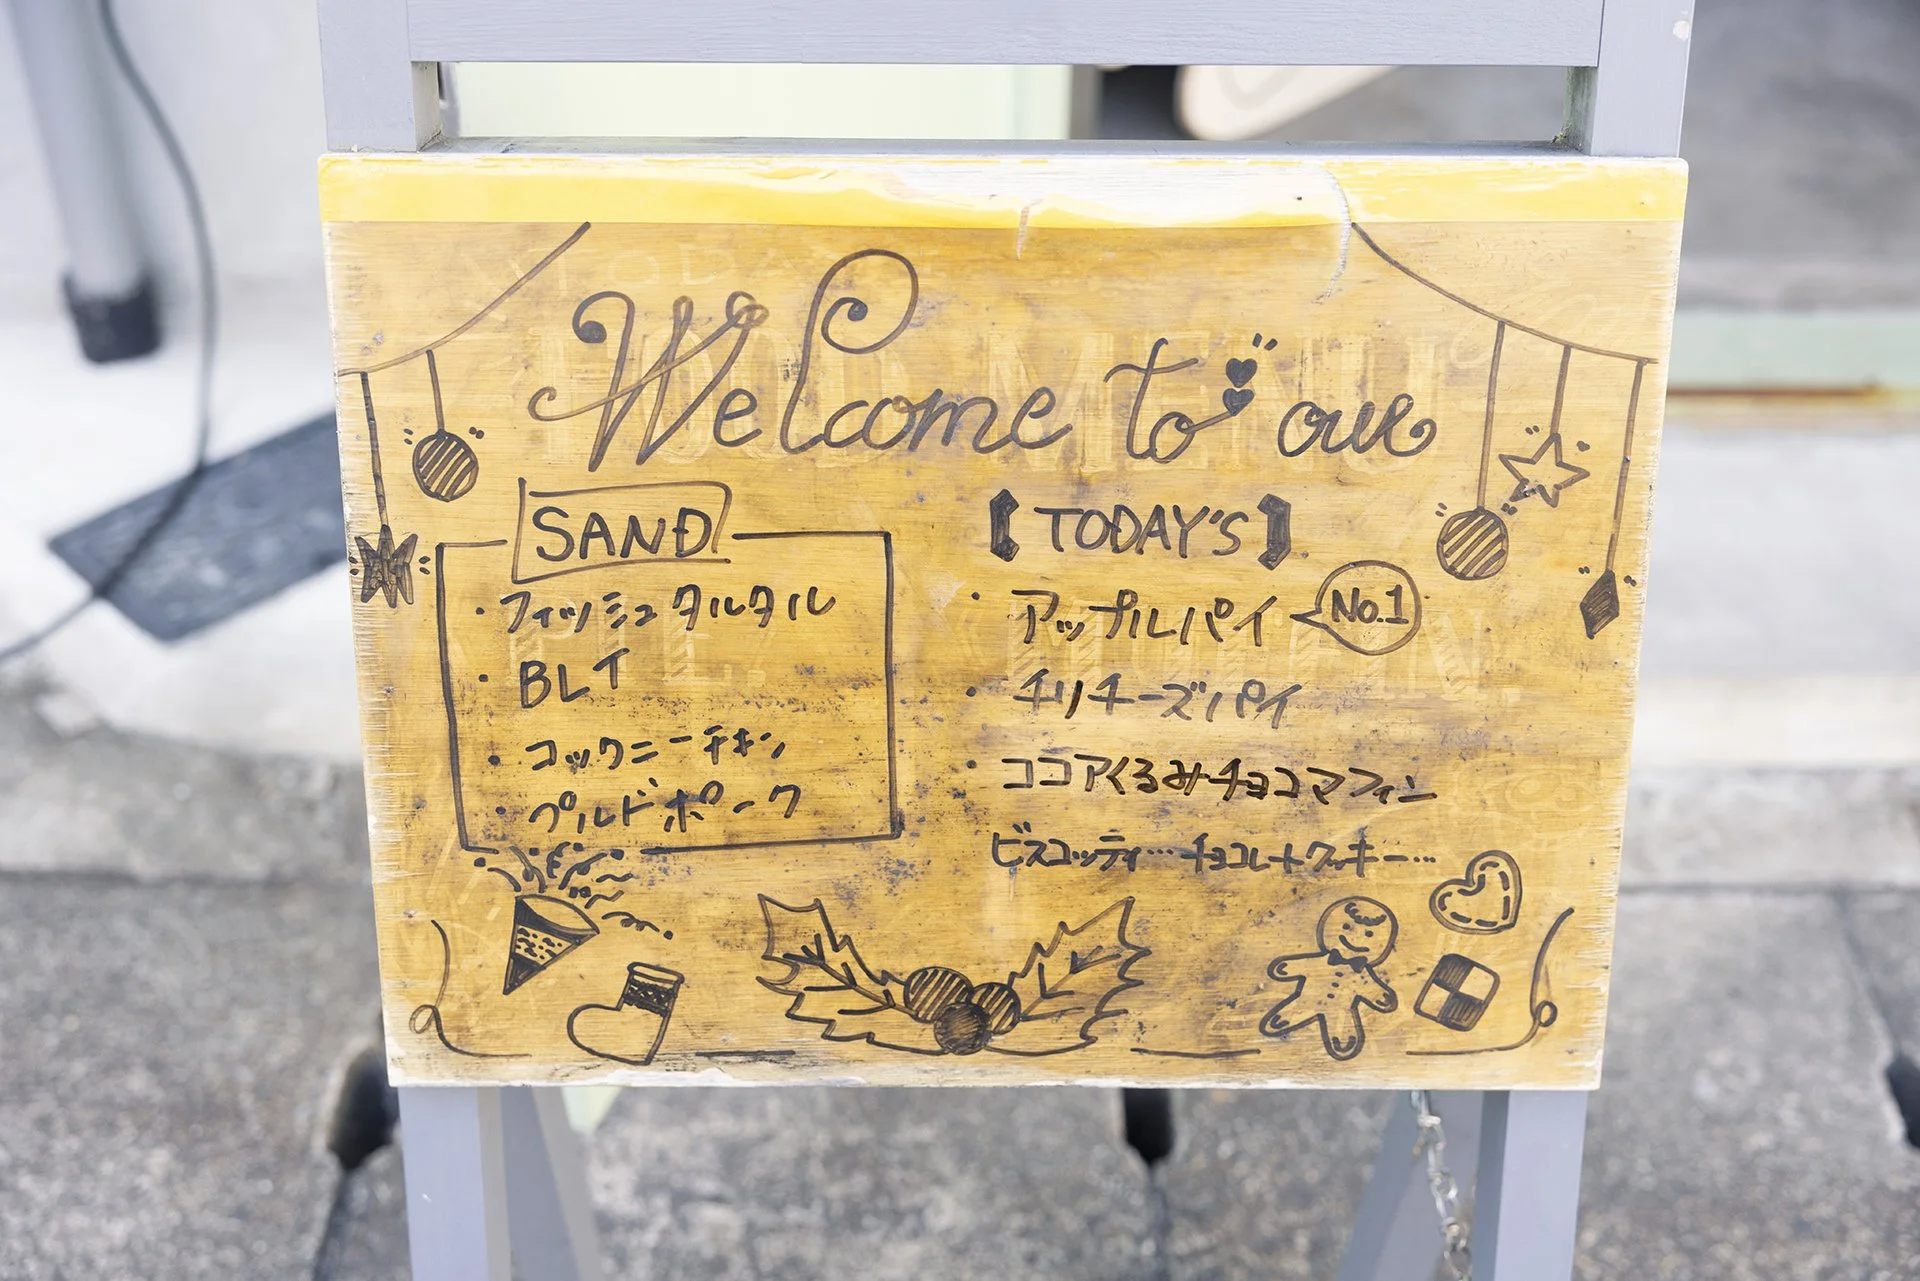 Welcome to our
SAND
・フィッシュタルタル
・BLT
・コックニーチキン
・プルドポーク
【TODAY'S】
・アップルパイ No.1
・チリチーズパイ
・ココアくるみチョコマフィン
ビスコッティ… チョコレートクッキー…